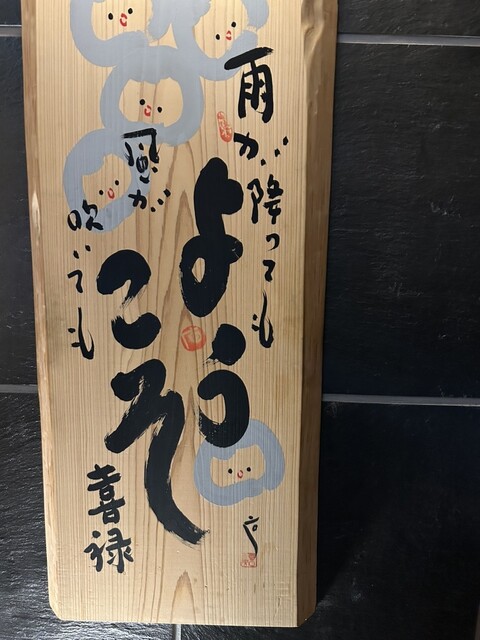 雨が降っても
風が
吹いても
よう
こそ
喜禄